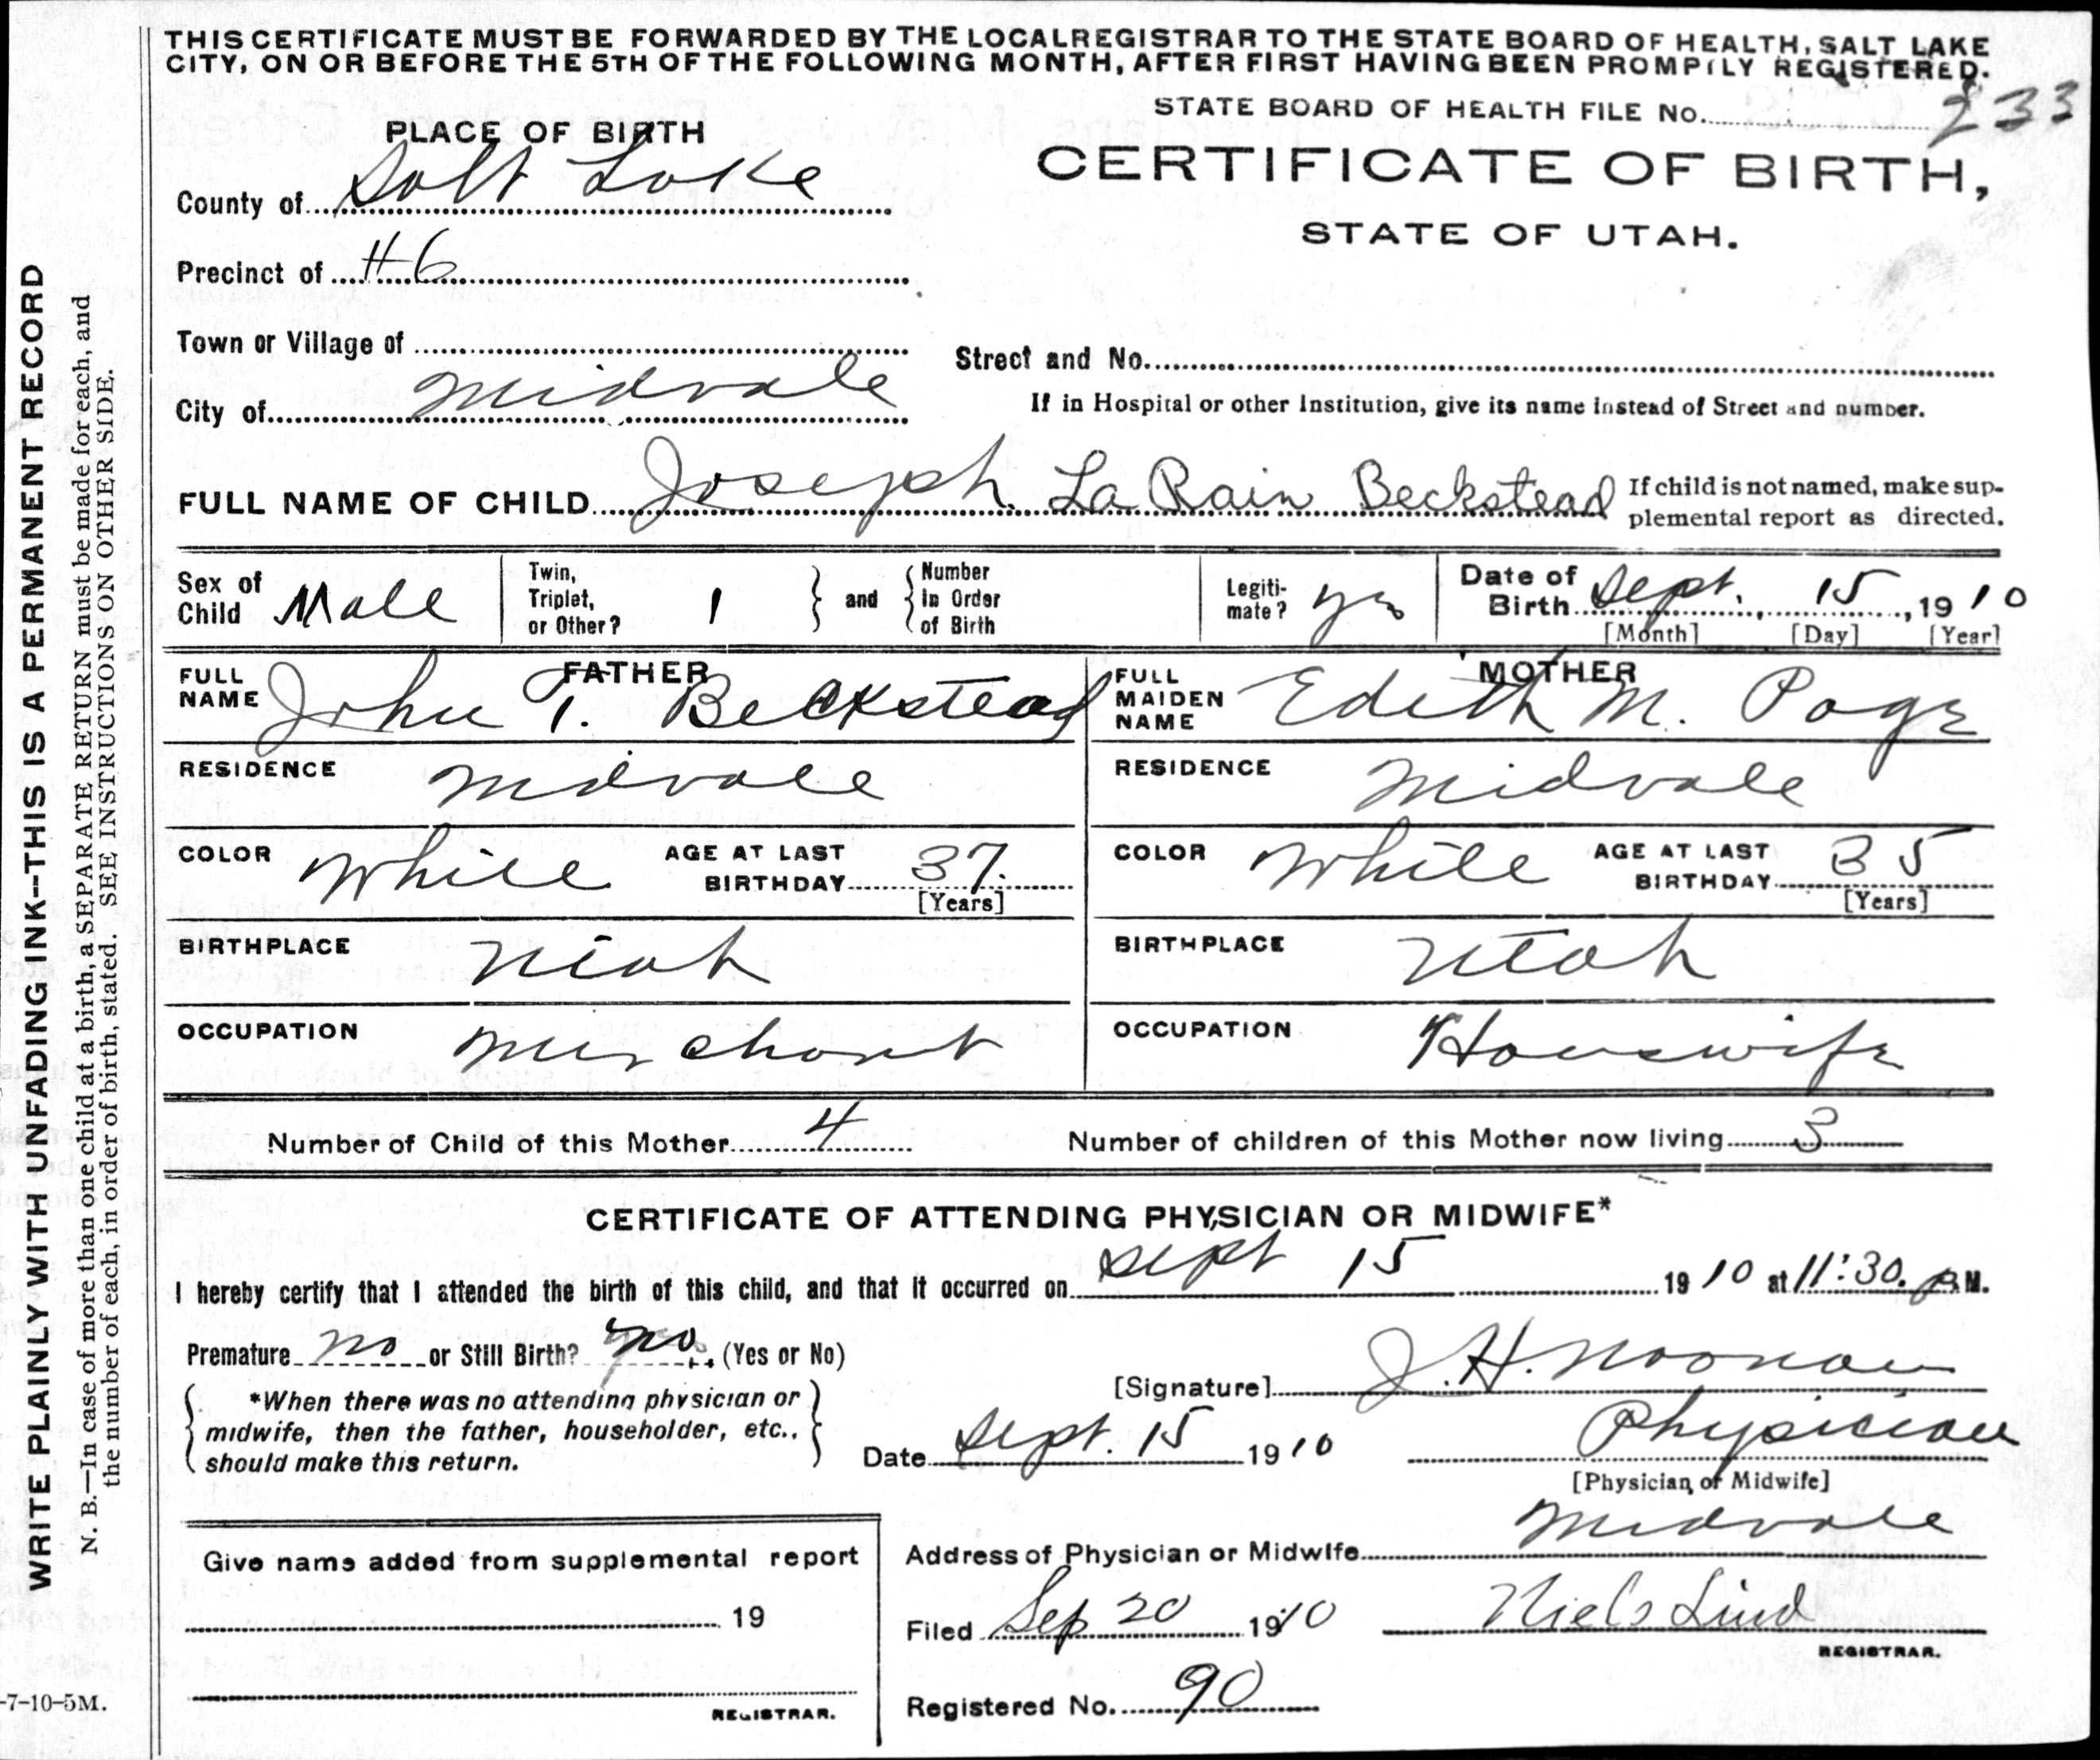 THIS CERTIFICATE MUST BE FORWARDED BY THE LOCAL REGISTRAR TO THE STATE BOARD OF HEALTH, SALT LAKE
CITY, ON OR BEFORE THE 5TH OF THE FOLLOWING MONTH, AFTER FIRST HAVING BEEN PROMPTLY REGISTERED.
STATE BOARD OF HEALTH FILE No. 233
PLACE OF BIRTH
CERTIFICATE OF BIRTH,
STATE OF UTAH.
County of Salt Lake
Precinct of #6
Town or Village of
Street and No.
City of Midvale
If in Hospital or other Institution, give its name instead of Street and number.
FULL NAME OF CHILD Joseph La Rain Beckstead
If child is not named, make sup-
plemental report as directed.
Sex of Child Male
Twin, Triplet, or Other? 1 and Number in Order of Birth
Legiti-mate? yes
Date of Birth Sept. 15, 1910
[Month] [Day] [Year]
FATHER
FULL NAME John T. Beckstead
MOTHER
FULL MAIDEN NAME Edith M. Page
RESIDENCE Midvale
RESIDENCE Midvale
COLOR White AGE AT LAST BIRTHDAY 37.
[Years]
COLOR White AGE AT LAST BIRTHDAY 35
[Years]
BIRTHPLACE Utah
BIRTHPLACE Utah
OCCUPATION Merchant
OCCUPATION Houswife
Number of Child of this Mother 4
Number of children of this Mother now living 3
CERTIFICATE OF ATTENDING PHYSICIAN OR MIDWIFE*
I hereby certify that I attended the birth of this child, and that it occurred on Sept 15 1910 at 11:30. P.M.
Premature no or Still Birth? no. (Yes or No)
*When there was no attending physician or
midwife, then the father, householder, etc.,
should make this return.
[Signature] J. H. Noonan
Date Sept. 15 1910
Physician
[Physician or Midwife]
Give name added from supplemental report
19
REGISTRAR.
Address of Physician or Midwife Midvale
Filed Sep 20 1910
Niels Lind
REGISTRAR.
Registered No. 90
-7-10-5M.
WRITE PLAINLY WITH UNFADING INK--THIS IS A PERMANENT RECORD
N. B.—In case of more than one child at a birth, a SEPARATE RETURN must be made for each, and
the number of each, in order of birth, stated. SEE INSTRUCTIONS ON OTHER SIDE.